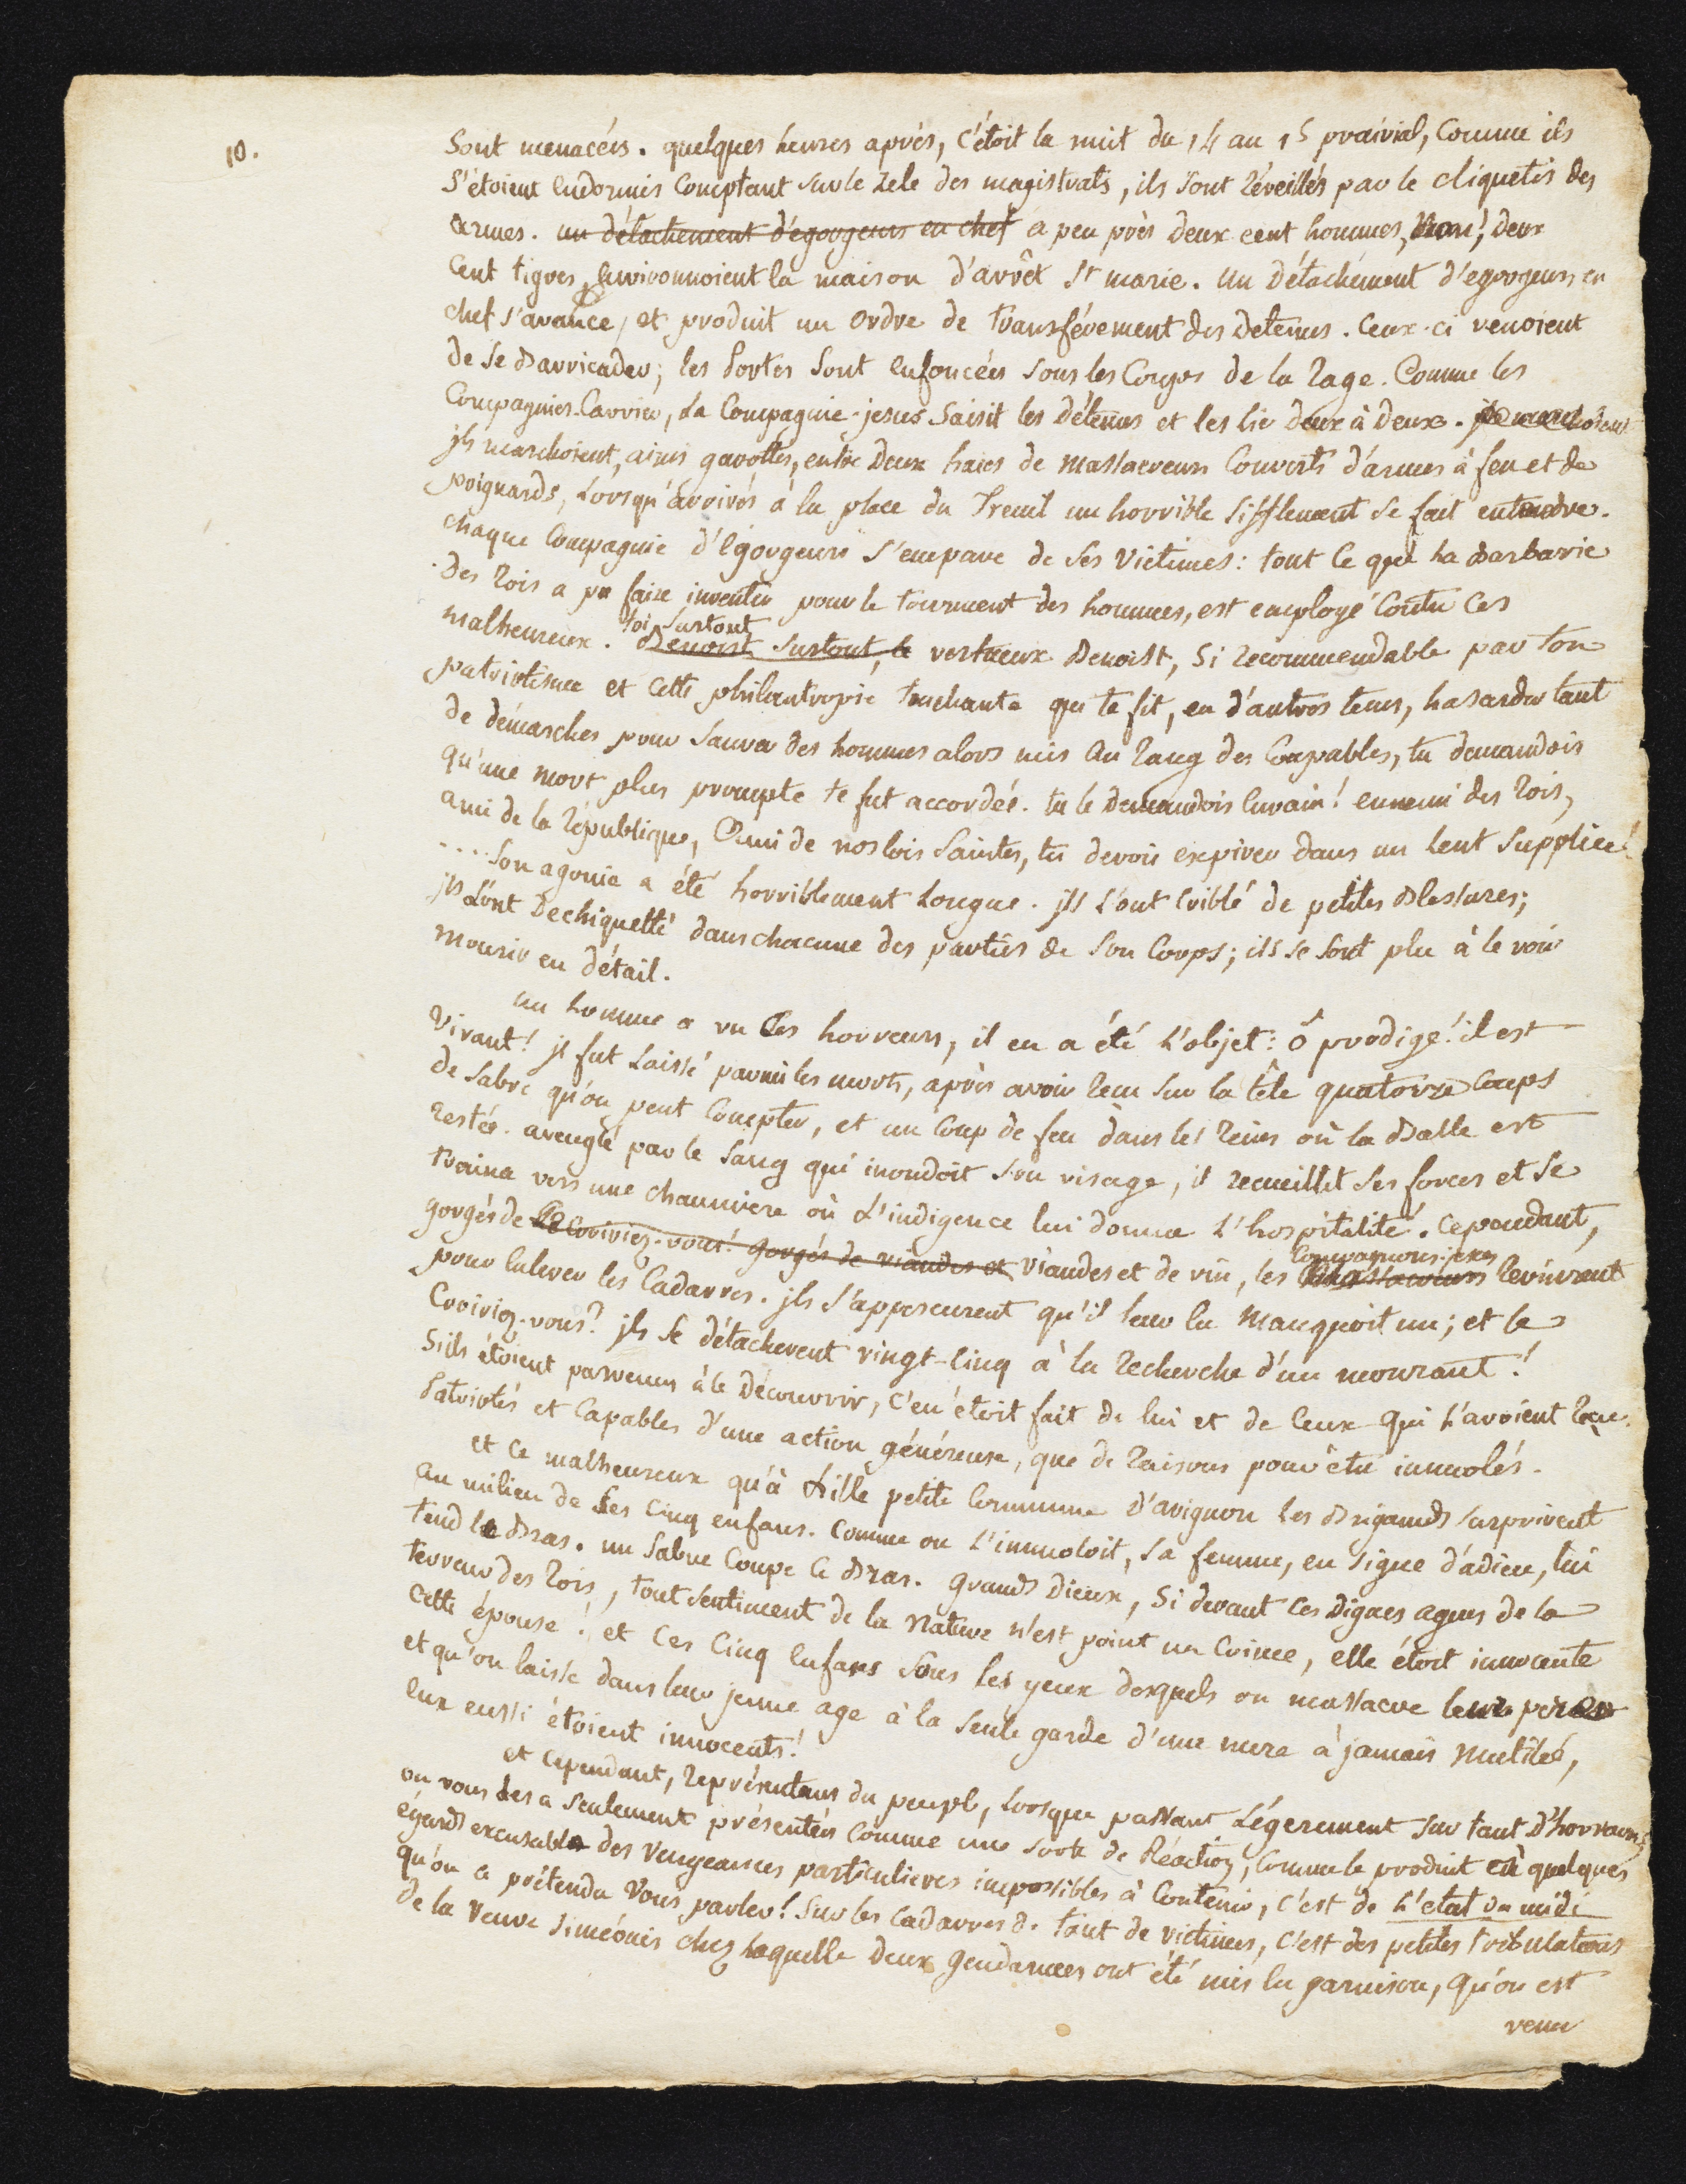 10.
Sont menacées. quelques heures après, c'étoit la nuit du 14 au 15 prairial, Comme ils
S'étoient Endormis Comptant sur le Zele des magistrats, ils sont réveillés par le cliquetis des
armes. un détachement d'égorgeurs en chef a peu près deux cent hommes, Non!, deux
Cent tigres, Environnoient la maison d'arrêt Ste marie. un détachement d'egorgeurs en
chef s'avance, et produit un Ordre de transférement des Detenus. Ceux-ci venoient
de se Barricader; les Portes sont Enfoncées sous les Coups de la rage. Comme les
Compagnies-Carrier, La Compagnie-jesus Saisit les détenus et les lie deux à deux. ils marchoient
jls marchoient, ainsi garottés, entre Deux haies de Massacreurs Couverts d'armes à feu et de
poignards, Lorsqu'arrivés à la place du Treuil un horrible Sifflement se fait entendre.
chaque Compagnie d'Egorgeurs s'empare de ses Victimes: tout Ce que La Barbarie
des rois a pu faire inventer pour le tourment des hommes, est employé Contre Ces
toi surtout
malheureux. Benoist surtout, le vertueux Benoist, Si recommendable par ton
patriotisme et cette philantropie touchante qui te fit, en d'autres tems, hasarder tant
de démarches pour sauver des hommes alors mis Au rang des Coupables, tu demandois
qu'une mort plus prompte te fut accordée. tu le Demandois Envain! ennemi des rois,
ami de la république, Ami de nos lois Saintes, tu devois expirer dans un lent Supplice!
.... Son agonie a été horriblement Longue. jls L'ont Criblé de petites Blessures;
jls L'ont Dechiquetté dans chacune des parties de Son Corps; ils se sont plu à le voir
Mourir en détail.
un homme a vu Ces horreurs, il en a été L'objet: ô prodige! il est
Vivant! jl fut Laissé parmi les morts, après avoir recu sur la tête quatorze Coups
de Sabre qu'on peut Compter, et un Coup de feu dans les reins où la Balle est
restée. aveuglé par le Sang qui inondoit son visage, il recueillit ses forces et se
traina vers une chaumiere où L'indigence lui donna L'hospitalité. Cependant,
Compagnons-jesus
gorgés de le Croiriez-vous! gorgés de viandes et Viandes et de vin, les massacreurs revinrent
pour Enlever les Cadavres. jls s'apperçurent qu'il leur En Manquoit un; et le
Croiriez-vous? jls se détacherent vingt-Cinq à la recherche d'un mourant!
S'ils étoient parvenus à le Découvrir, C'en étoit fait de lui et de Ceux qui L'avoient reçu.
Patriotes et Capables d'une action généreuse, que de raisons pour être immolés.
et Ce malheureux qu'à Lille petite Commune d'avignon les Brigands surprirent
au milieu de Ses Cinq enfans. Comme on L'immoloit, Sa femme, en signe d'adieu, lui
tend le Bras. un Sabre Coupe Ce Bras. grands Dieux, Si devant ces Dignes agens de la
terreur des rois, tout sentiment de la Nature n'est point un Crime, elle étoit innocente
Cette épouse! et Ces Cinq Enfans sous les yeux desquels on massacre leur pere
et qu'on laisse dans leur jeune age à la Seule garde d'une mere à jamais Mutilée,
Eux aussi étoient innocents!
et Cependant, représentans du peuple, lorsque passant Légerement sur tant d'horreurs
on vous les a seulement présentées Comme une sorte de Réaction, Comme le produit en quelques
égards excusable des Vengeances particulieres impossibles à Contenir, C'est de L'etat du midi
qu'on a prétendu Vous parler! Sur les Cadavres de tant de victimes, c'est des petites tribulations
de la Veuve Siméonis chez laquelle Deux Gendarmes ont été mis En garnison, qu'on est
venu